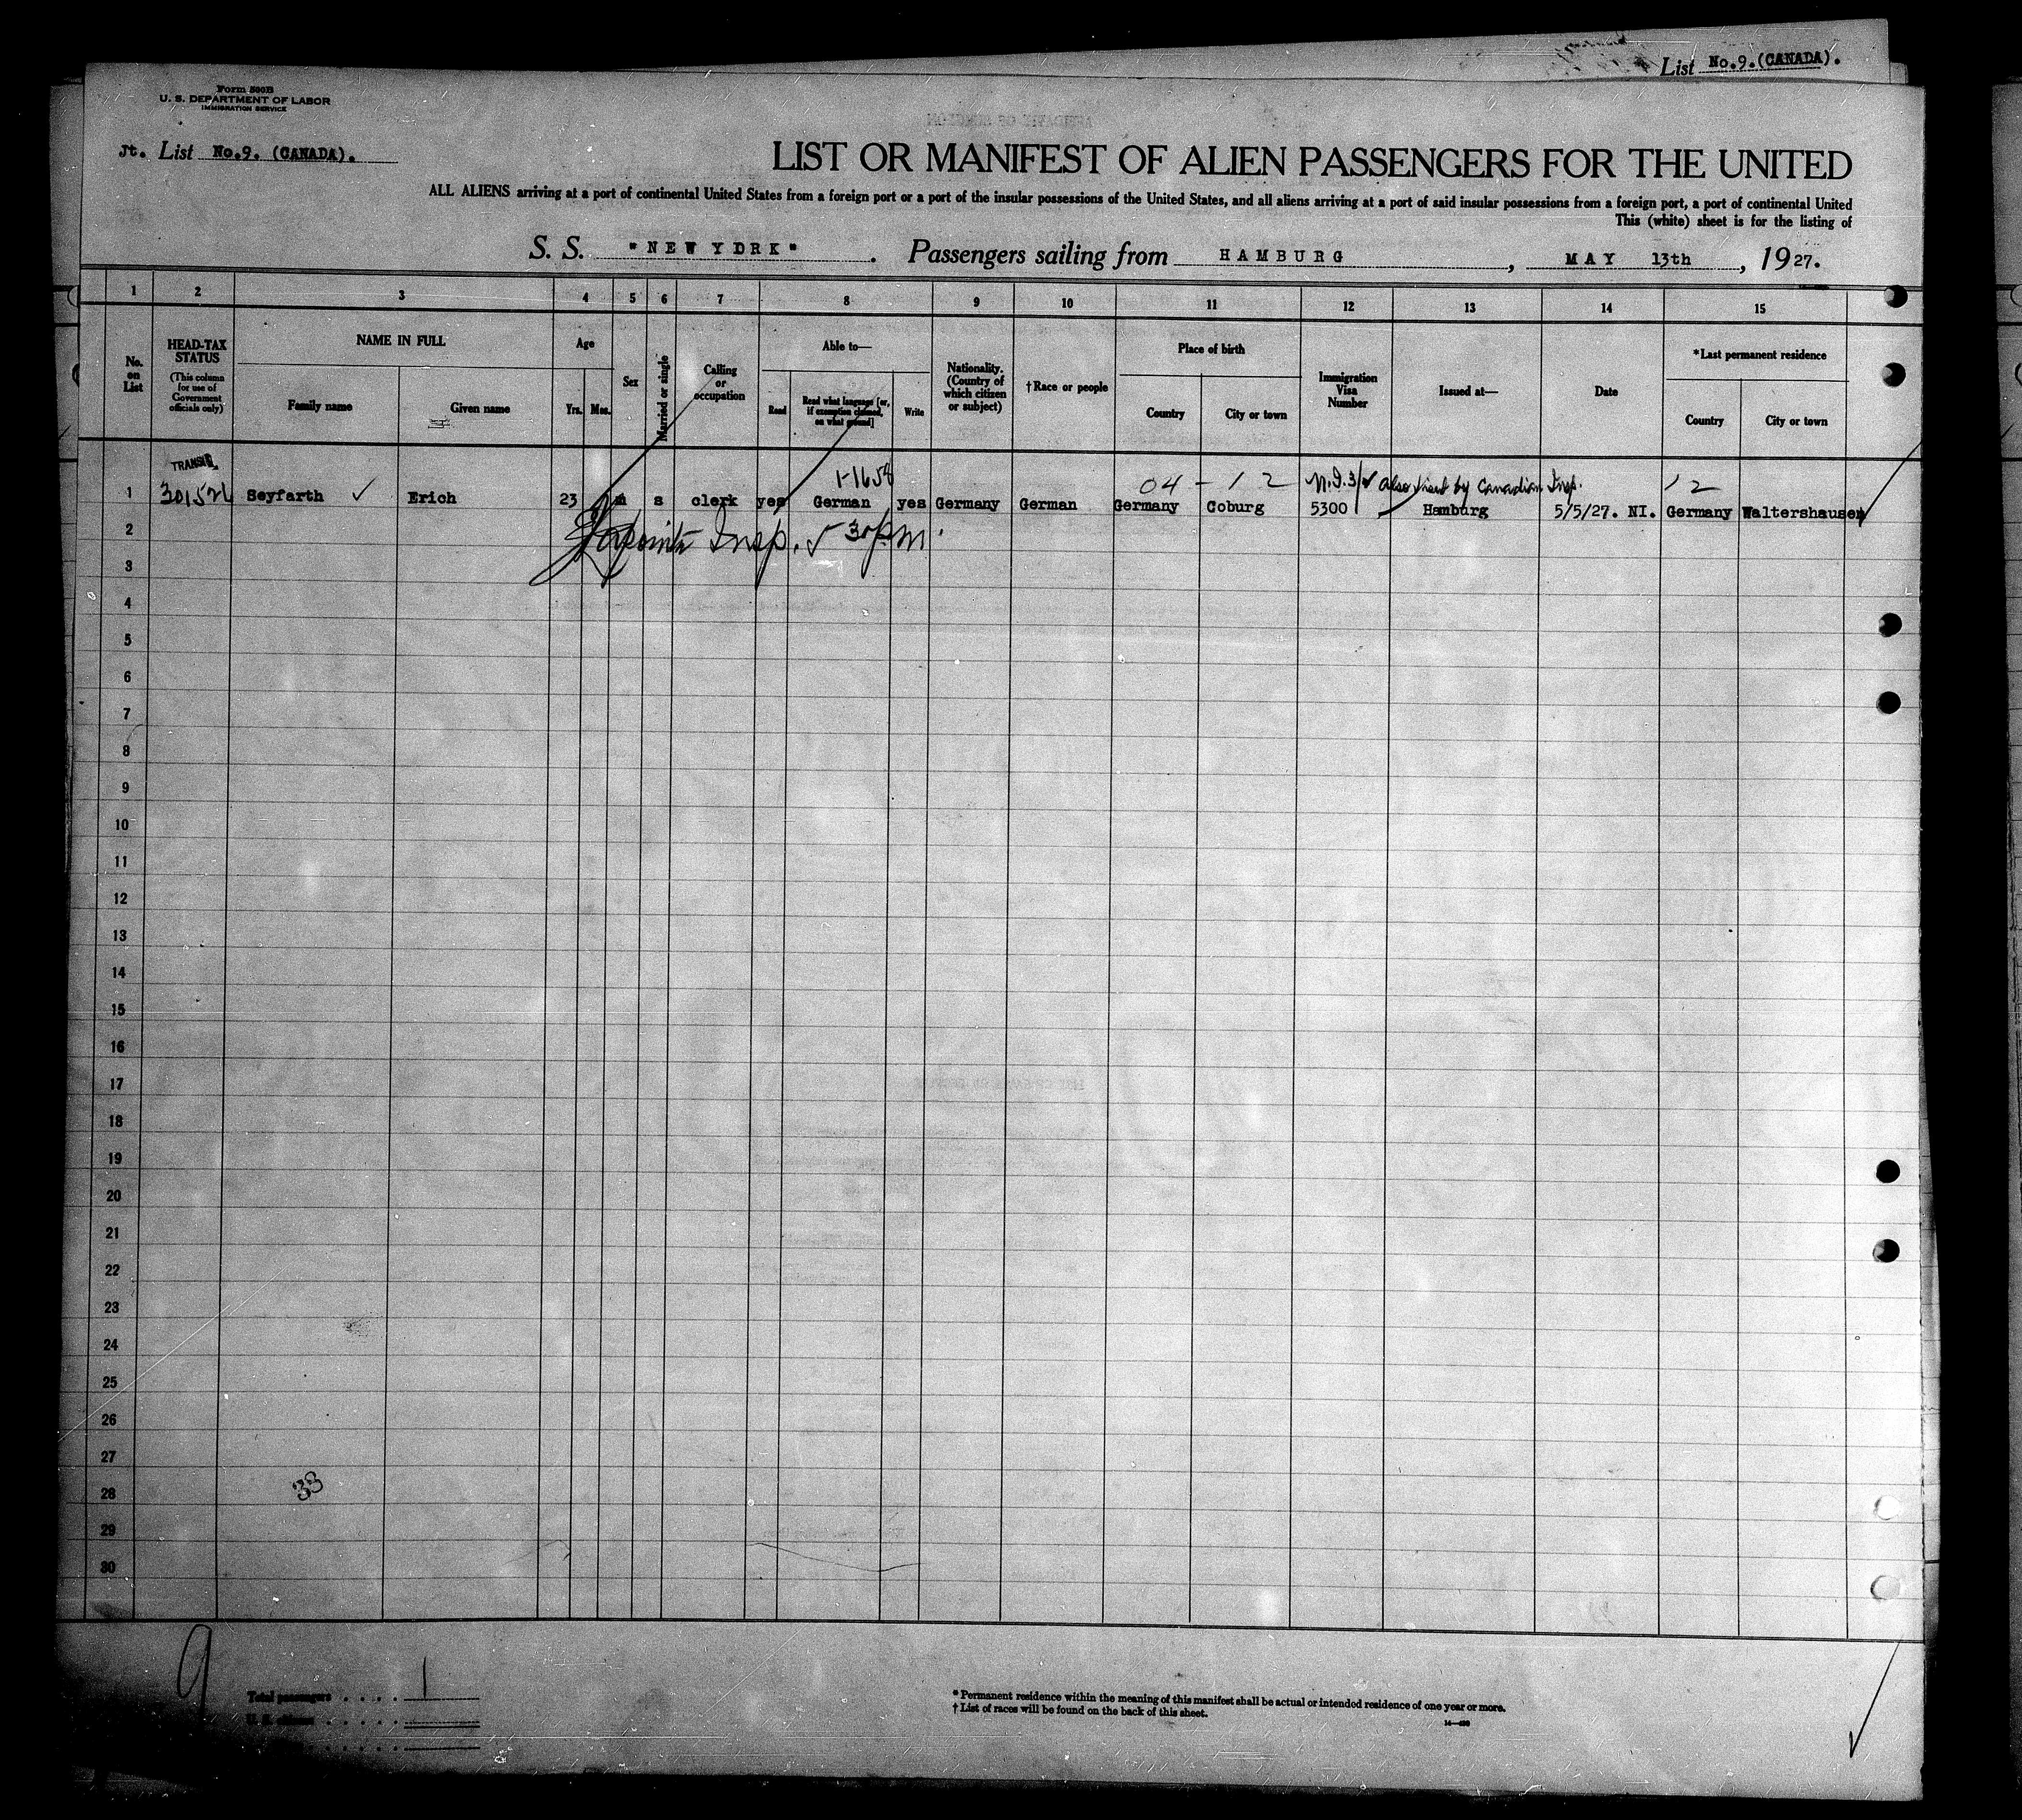 List No.9.(CANADA).
Form 500B
U. S. DEPARTMENT OF LABOR
IMMIGRATION SERVICE
Jt. List No.9. (CANADA).
LIST OR MANIFEST OF ALIEN PASSENGERS FOR THE UNITED
ALL ALIENS arriving at a port of continental United States from a foreign port or a port of the insular possessions of the United States, and all aliens arriving at a port of said insular possessions from a foreign port, a port of continental United
This (white) sheet is for the listing of
S. S. "NEW YORK". Passengers sailing from HAMBURG, MAY 13th, 1927.
1 2 3 4 5 6 7 8 9 10 11 12 13 14 15
No. on List
HEAD-TAX STATUS
(This column for use of Government officials only)
NAME IN FULL
Family name
Given name
Age
Yrs. Mos.
Sex
Married or single
Calling or occupation
Able to—
Read
Read what language [or, if exemption claimed, on what ground]
Write
Nationality. (Country of which citizen or subject)
†Race or people
Place of birth
Country
City or town
Immigration Visa Number
Issued at—
Date
*Last permanent residence
Country
City or town
TRANSIT
1-1658
04 - 12
N.I.3/ ✓ also vised by Canadian Insp.
12
1 301524 Seyfarth ✓ Erich 23 m s clerk yes German yes Germany German Germany Coburg 5300 Hamburg 5/5/27. NI. Germany Waltershausen
2
Insp. 5 30 p m.
3
4
5
6
7
8
9
10
11
12
13
14
15
16
17
18
19
20
21
22
23
24
25
26
27
28
33
29
30
9
Total passengers . . . . 1
U. S. citizens . . . . .
* Permanent residence within the meaning of this manifest shall be actual or intended residence of one year or more.
† List of races will be found on the back of this sheet.